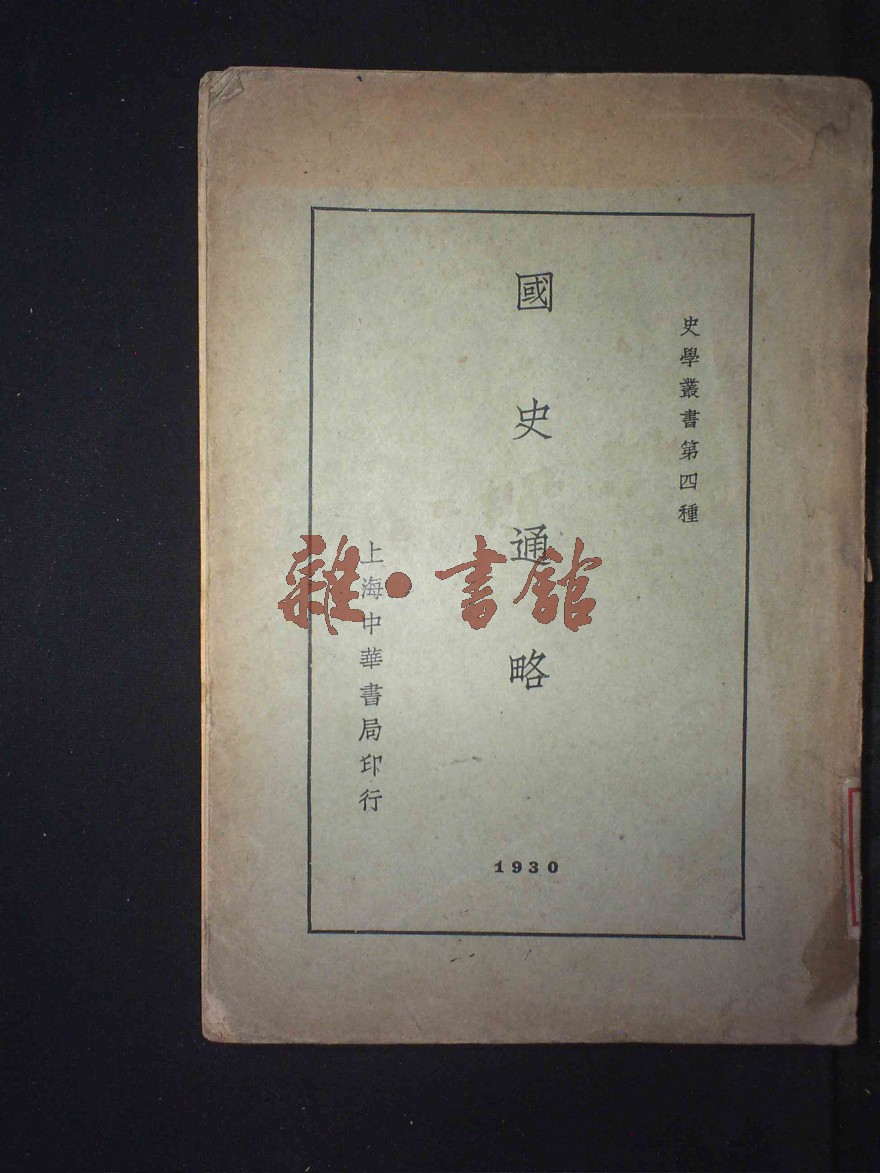 史學叢書第四種
國史通略
上海中華書局印行
1930
雜·書館